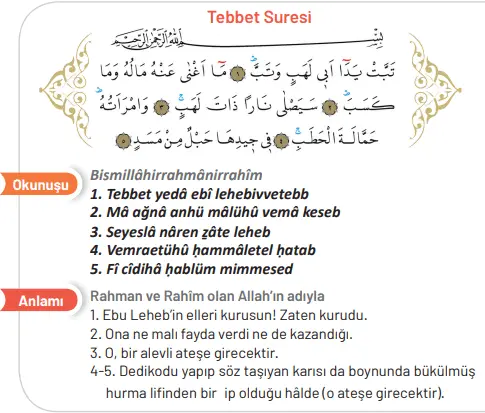 Tebbet Suresi
بِسْمِ اللّٰهِ الرَّحْمٰنِ الرَّحٖيمِ
تَبَّتْ يَدَٓا اَبٖي لَهَبٍ وَتَبَّ ﴿١﴾ مَٓا اَغْنٰى عَنْهُ مَالُهُ وَمَا
كَسَبَ ﴿٢﴾ سَيَصْلٰى نَاراً ذَاتَ لَهَبٍ ﴿٣﴾ وَامْرَاَتُهُ
حَمَّالَةَ الْحَطَبِ ﴿٤﴾ فٖي جٖيدِهَا حَبْلٌ مِنْ مَسَدٍ ﴿٥﴾
Okunuşu
Bismillâhirrahmânirrahîm
1. Tebbet yedâ ebî lehebivvetebb
2. Mâ ağnâ anhü mâlühû vemâ keseb
3. Seyeslâ nâren ẕâte leheb
4. Vemraetühû ḥammâletel ḥatab
5. Fî cîdihâ ḥablüm mimmesed
Anlamı
Rahman ve Rahîm olan Allah’ın adıyla
1. Ebu Leheb’in elleri kurusun! Zaten kurudu.
2. Ona ne malı fayda verdi ne de kazandığı.
3. O, bir alevli ateşe girecektir.
4-5. Dedikodu yapıp söz taşıyan karısı da boynunda bükülmüş
hurma lifinden bir ip olduğu hâlde (o ateşe girecektir).